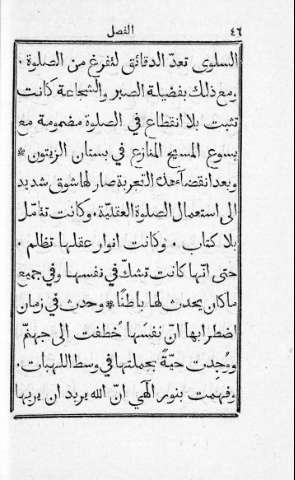 ٤٦ الفصل
السلوى تعدّ الدقائق لتفرغ من الصلوة .
ومع ذلك بفضيلة الصبر والشجاعة كانت
تثبت بلا انقطاع في الصلوة مضمومة مع
يسوع المسيح المنازع في بستان الزيتون *
وبعد انقضآء هذه التجربة صار لها شوق شديد
الى استعمال الصلوة العقليّة. وكانت تتأمّل
بلا كتاب . وكانت انوار عقلها تظلم .
حتى انّها كانت تشكّ في نفسها وفي جميع
ما كان يحدث لها باطنًا * وحدث في زمان
اضطرابها انّ نفسَها خُطفت الى جهنّم
ووُجِدت حيّةً بجملتها في وسط اللهبات .
وفهمت بنور الٓهي انّ الله يريد ان يريها